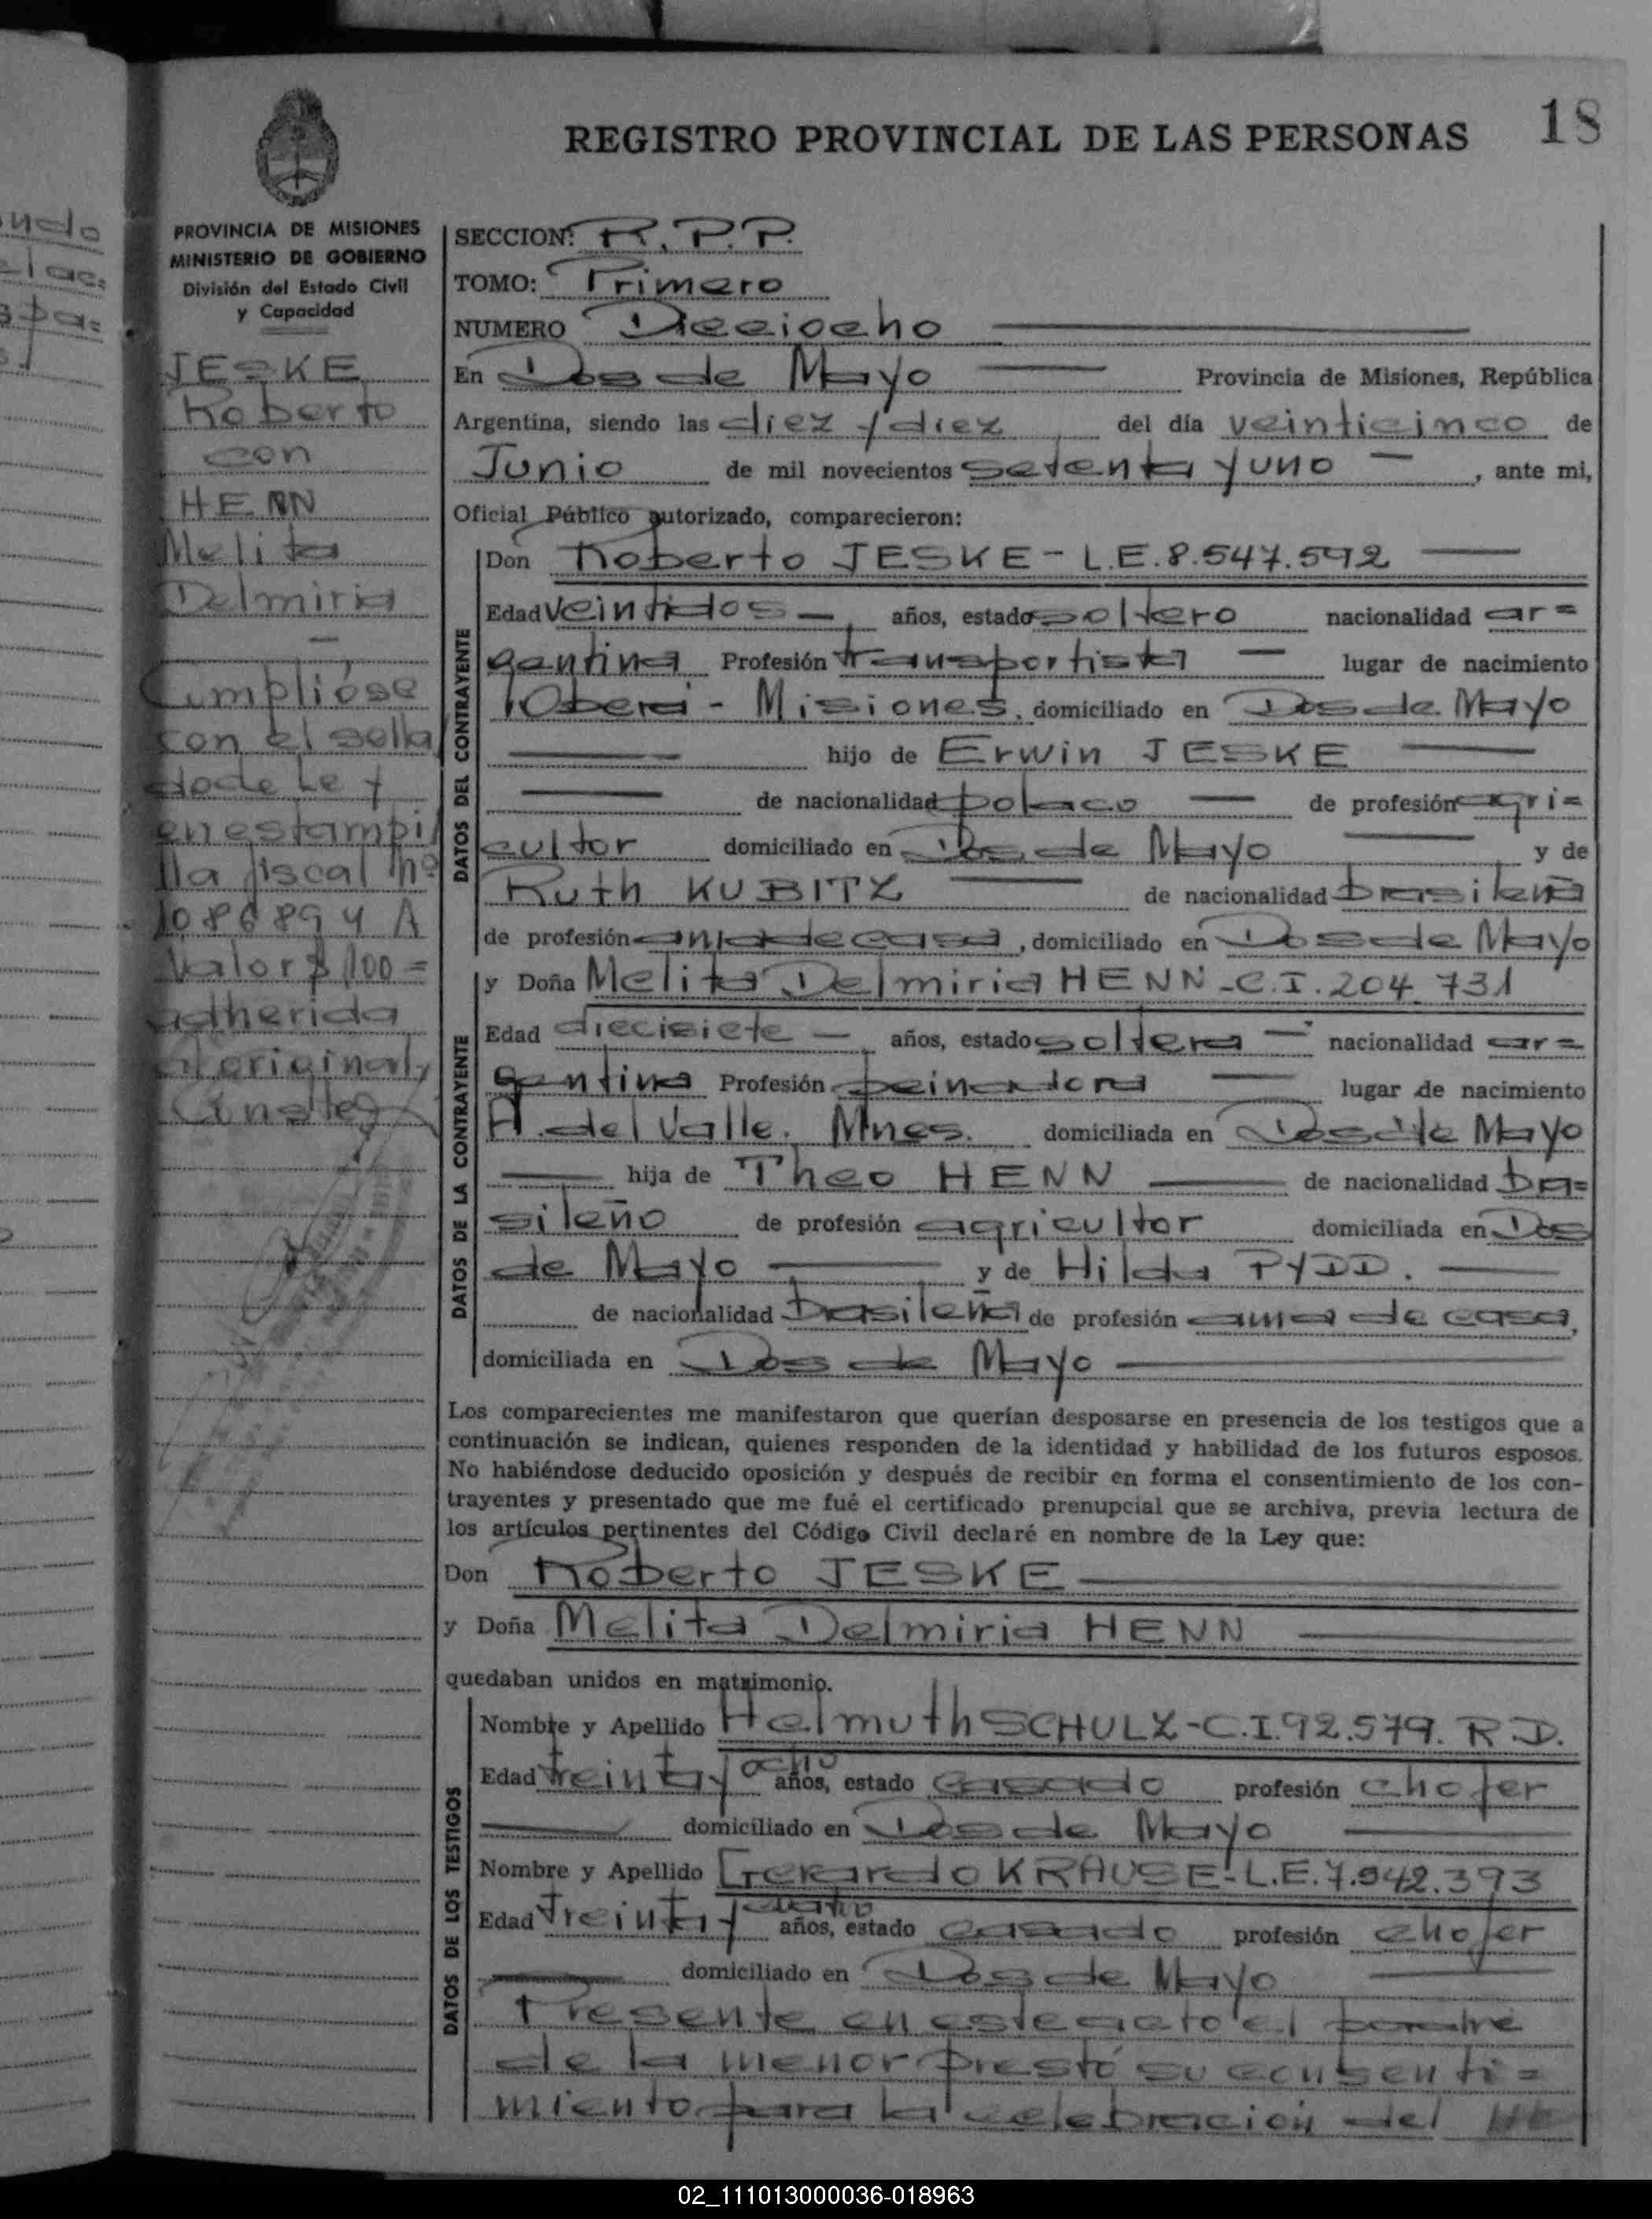 REGISTRO PROVINCIAL DE LAS PERSONAS
18
PROVINCIA DE MISIONES
MINISTERIO DE GOBIERNO
División del Estado Civil
y Capacidad
JESKE
Roberto
con
HENN
Melita
Delmiria
—
Cumplióse
con el sella
do de Ley
en estampi
lla fiscal nº
1086894 A
Valor $ 100=
adherida
al original,
SECCION: R.P.P.
TOMO: Primero
NUMERO Dieciocho
En Dos de Mayo Provincia de Misiones, República
Argentina, siendo las diez y diez del día veinticinco de
Junio de mil novecientos setenta y uno — , ante mi,
Oficial Público autorizado, comparecieron:
DATOS DEL CONTRAYENTE
Don Roberto JESKE - L.E. 8.547.592
Edad veintidos — años, estado soltero nacionalidad ar=
gentina Profesión transportista — lugar de nacimiento
Oberá - Misiones, domiciliado en Dos de Mayo
hijo de Erwin JESKE
de nacionalidad polaco — de profesión agri=
cultor domiciliado en Dos de Mayo y de
Ruth KUBITZ de nacionalidad brasileña
de profesión ama de casa, domiciliado en Dos de Mayo
DATOS DE LA CONTRAYENTE
y Doña Melita Delmiria HENN - C.I. 204.731
Edad diecisiete — años, estado soltera — nacionalidad ar=
gentina Profesión peinadora — lugar de nacimiento
A. del Valle. Mnes. domiciliada en Dos de Mayo
hija de Theo HENN de nacionalidad bra=
sileño de profesión agricultor domiciliada en Dos
de Mayo y de Hilda PYDD.
de nacionalidad brasileña de profesión ama de casa,
domiciliada en Dos de Mayo
Los comparecientes me manifestaron que querían desposarse en presencia de los testigos que a
continuación se indican, quienes responden de la identidad y habilidad de los futuros esposos.
No habiéndose deducido oposición y después de recibir en forma el consentimiento de los con-
trayentes y presentado que me fué el certificado prenupcial que se archiva, previa lectura de
los artículos pertinentes del Código Civil declaré en nombre de la Ley que:
Don Roberto JESKE
y Doña Melita Delmiria HENN
quedaban unidos en matrimonio.
DATOS DE LOS TESTIGOS
Nombre y Apellido Helmuth SCHULZ - C.I. 92.579. R.D.
Edad treinta y ocho años, estado casado profesión chofer
domiciliado en Dos de Mayo
Nombre y Apellido Gerardo KRAUSE - L.E. 7.542.393
Edad treinta y cuatro años, estado casado profesión chofer
domiciliado en Dos de Mayo
Presente en este acto el padre
de la menor prestó su consenti=
miento para la celebración del
02_111013000036-018963